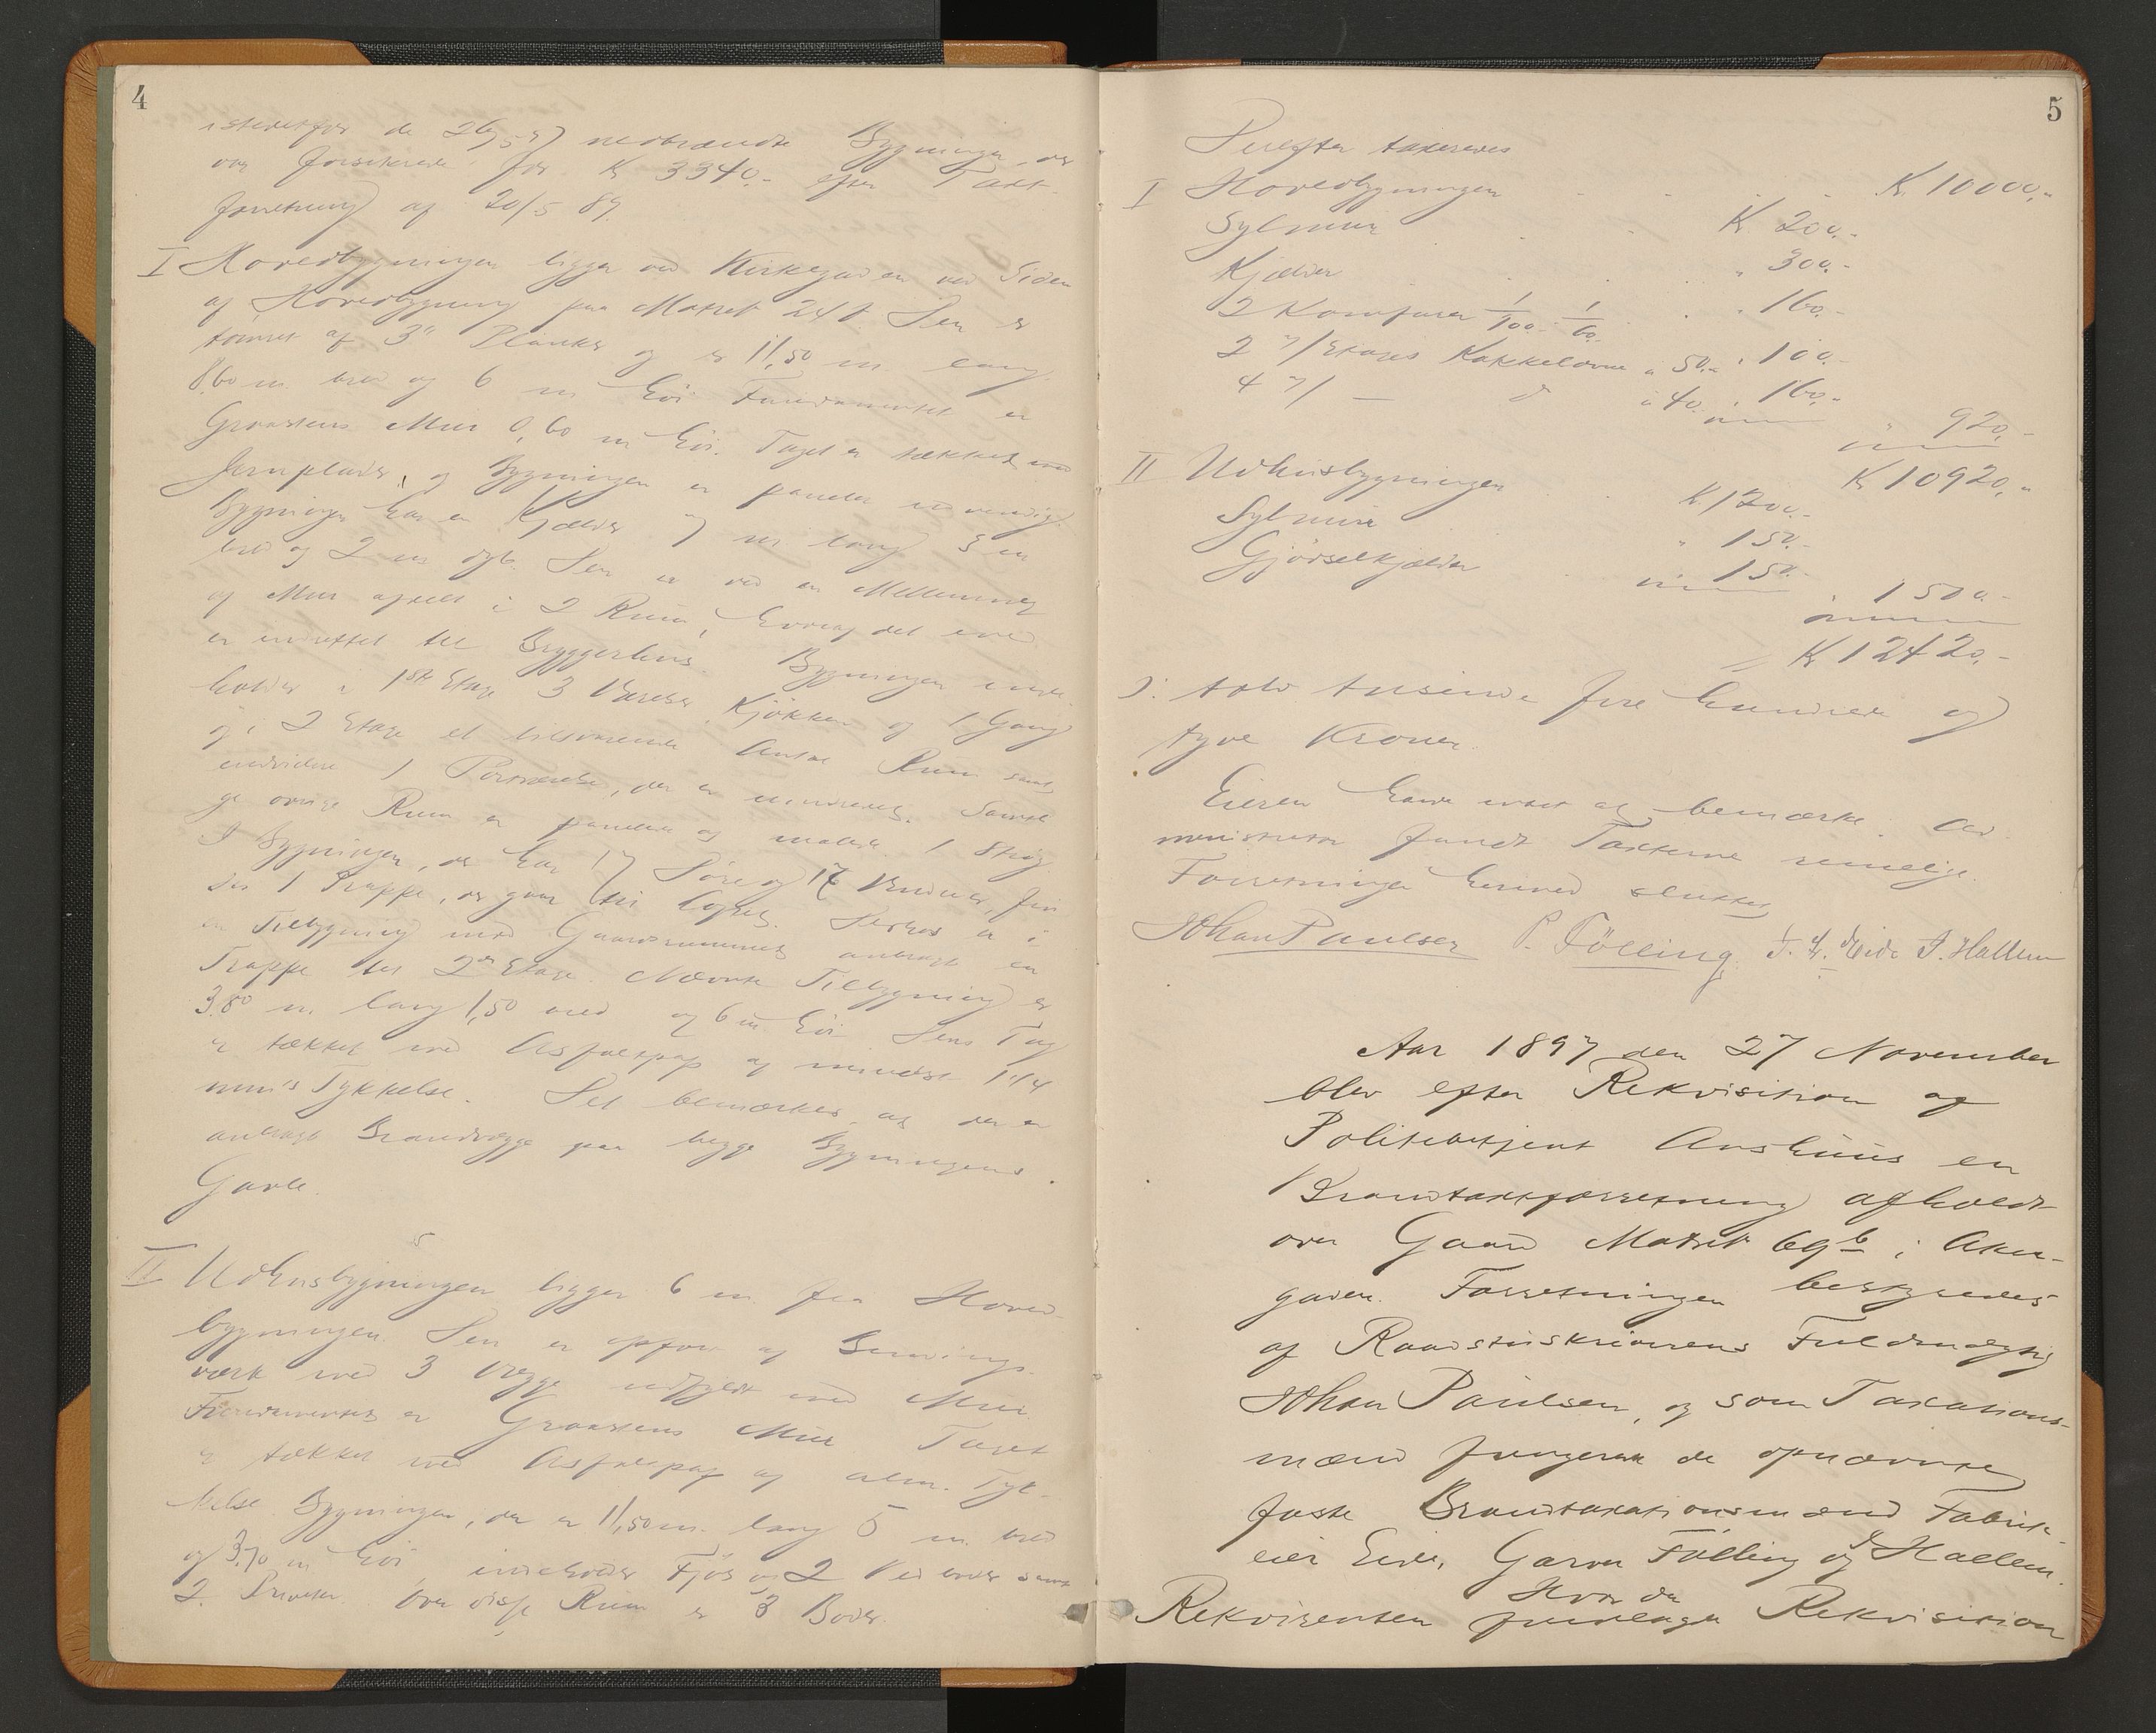 4
istedetfor de 26/5 97 nedbrændte Bygninger, der
var forsikrede for Kr 3340,- efter Taxt-
forretning af 20/5 89.
I Hovedbygningen ligger ved Kirkegaden ved Siden
af Hovedbygning paa Matrik 241. Den er
tømret af 3" Planker og er 11,50 m lang
8,60 m bred og 6 m høi. Fundamentet er
Graastens Mur 0,60 m høi. Taget er tækket med
Jernplader, og Bygningen er panelet udvendig.
Bygningen har en Kjælder 7 m lang 5 m
bred og 2 m dyb. Den er ved en Mellemvæg
af Mur afdelt i 2 Rum, hvoraf det ene
er indrettet til Bryggerhus. Bygningen inde-
holder i 1ste Etage 3 Værelser, Kjøkken og 1 Gang
og i 2 Etage et tilsvarende Antal Rum samt
endvidere 1 Pigeværelse, der er uindredet. Samtli
ge øvrige Rum er panelede og malede. 1 Strøg
I Bygningen, der har 17 Døre og 17 Vinduer, fin
des 1 Trappe, der gaar til Loftet. Desuden er i
en Tilbygning mod Gaardsrummet anbragt en
Trappe til 2den Etage. Nævnte Tilbygning er
3,80 m lang 1,50 bred og 6 m høi. Dens Tag
er tækket med Asfaltpap af mindst 1 1/4
mm's Tykkelse. Det bemærkes, at der er
anbragt Brandvægge paa begge Bygningens
Gavle.
II Udhusbygningen ligger 6 m fra Hoved-
bygningen. Den er opført af Bindings-
værk med 3 Vægge udfyldt med Mur
Fundamentet er Graastens Mur Taget
er tækket med Asfaltpap af alm. Tyk-
kelse. Bygningen, der er 11,50 m. lang 5 m. bred
og 3,70 m høi, indeholder Fjøs og 2 Vedboder samt
2. Priveter. Over disse Rum er 3 Boder.
5
Derefter taxeredes
I Hovedbygningen Kr. 10000,-
Sylmur Kr 200,-
Kjælder " 300,-
2 Komfurer 1/100,- 1/60,- " 160,-
2 2/Etages Kakkelovne a 50,- " 100,-
4 2/ — d a 40,- " 160,-
" 920,-
Kr 10920,-
II Udhusbygningen Kr. 1200,-
Sylmur " 150,-
Gjødselkjælder " 150,-
" 1500,-
Kr 12420,-
ɔ: tolv tusinde fire hundrede og
tyve Kroner.
Eieren havde intet at bemærke. Ad-
ministrator fandt Taxterne rimelige.
Forretningen hermed sluttet
Johan Paulsen P. Fölling J. Fr. Eide J. Hallem
Aar 1897 den 27 November
blev efter Rekvisition af
Politibetjent Aashuus en
Brandtaxtforretning afholdt
over Gaard Matrik 69b i Aker-
gaden. Forretningen bestyredes
af Raadstuskriverens Fuldmægtig
Johan Paulsen, og som Taxations-
mænd fungerede de opnævnte
faste Brandtaxationsmænd Fabrik-
eier Eide, Garver Fölling og Hallem.
Hvor da
Rekvirenten fremlagde Rekvisition